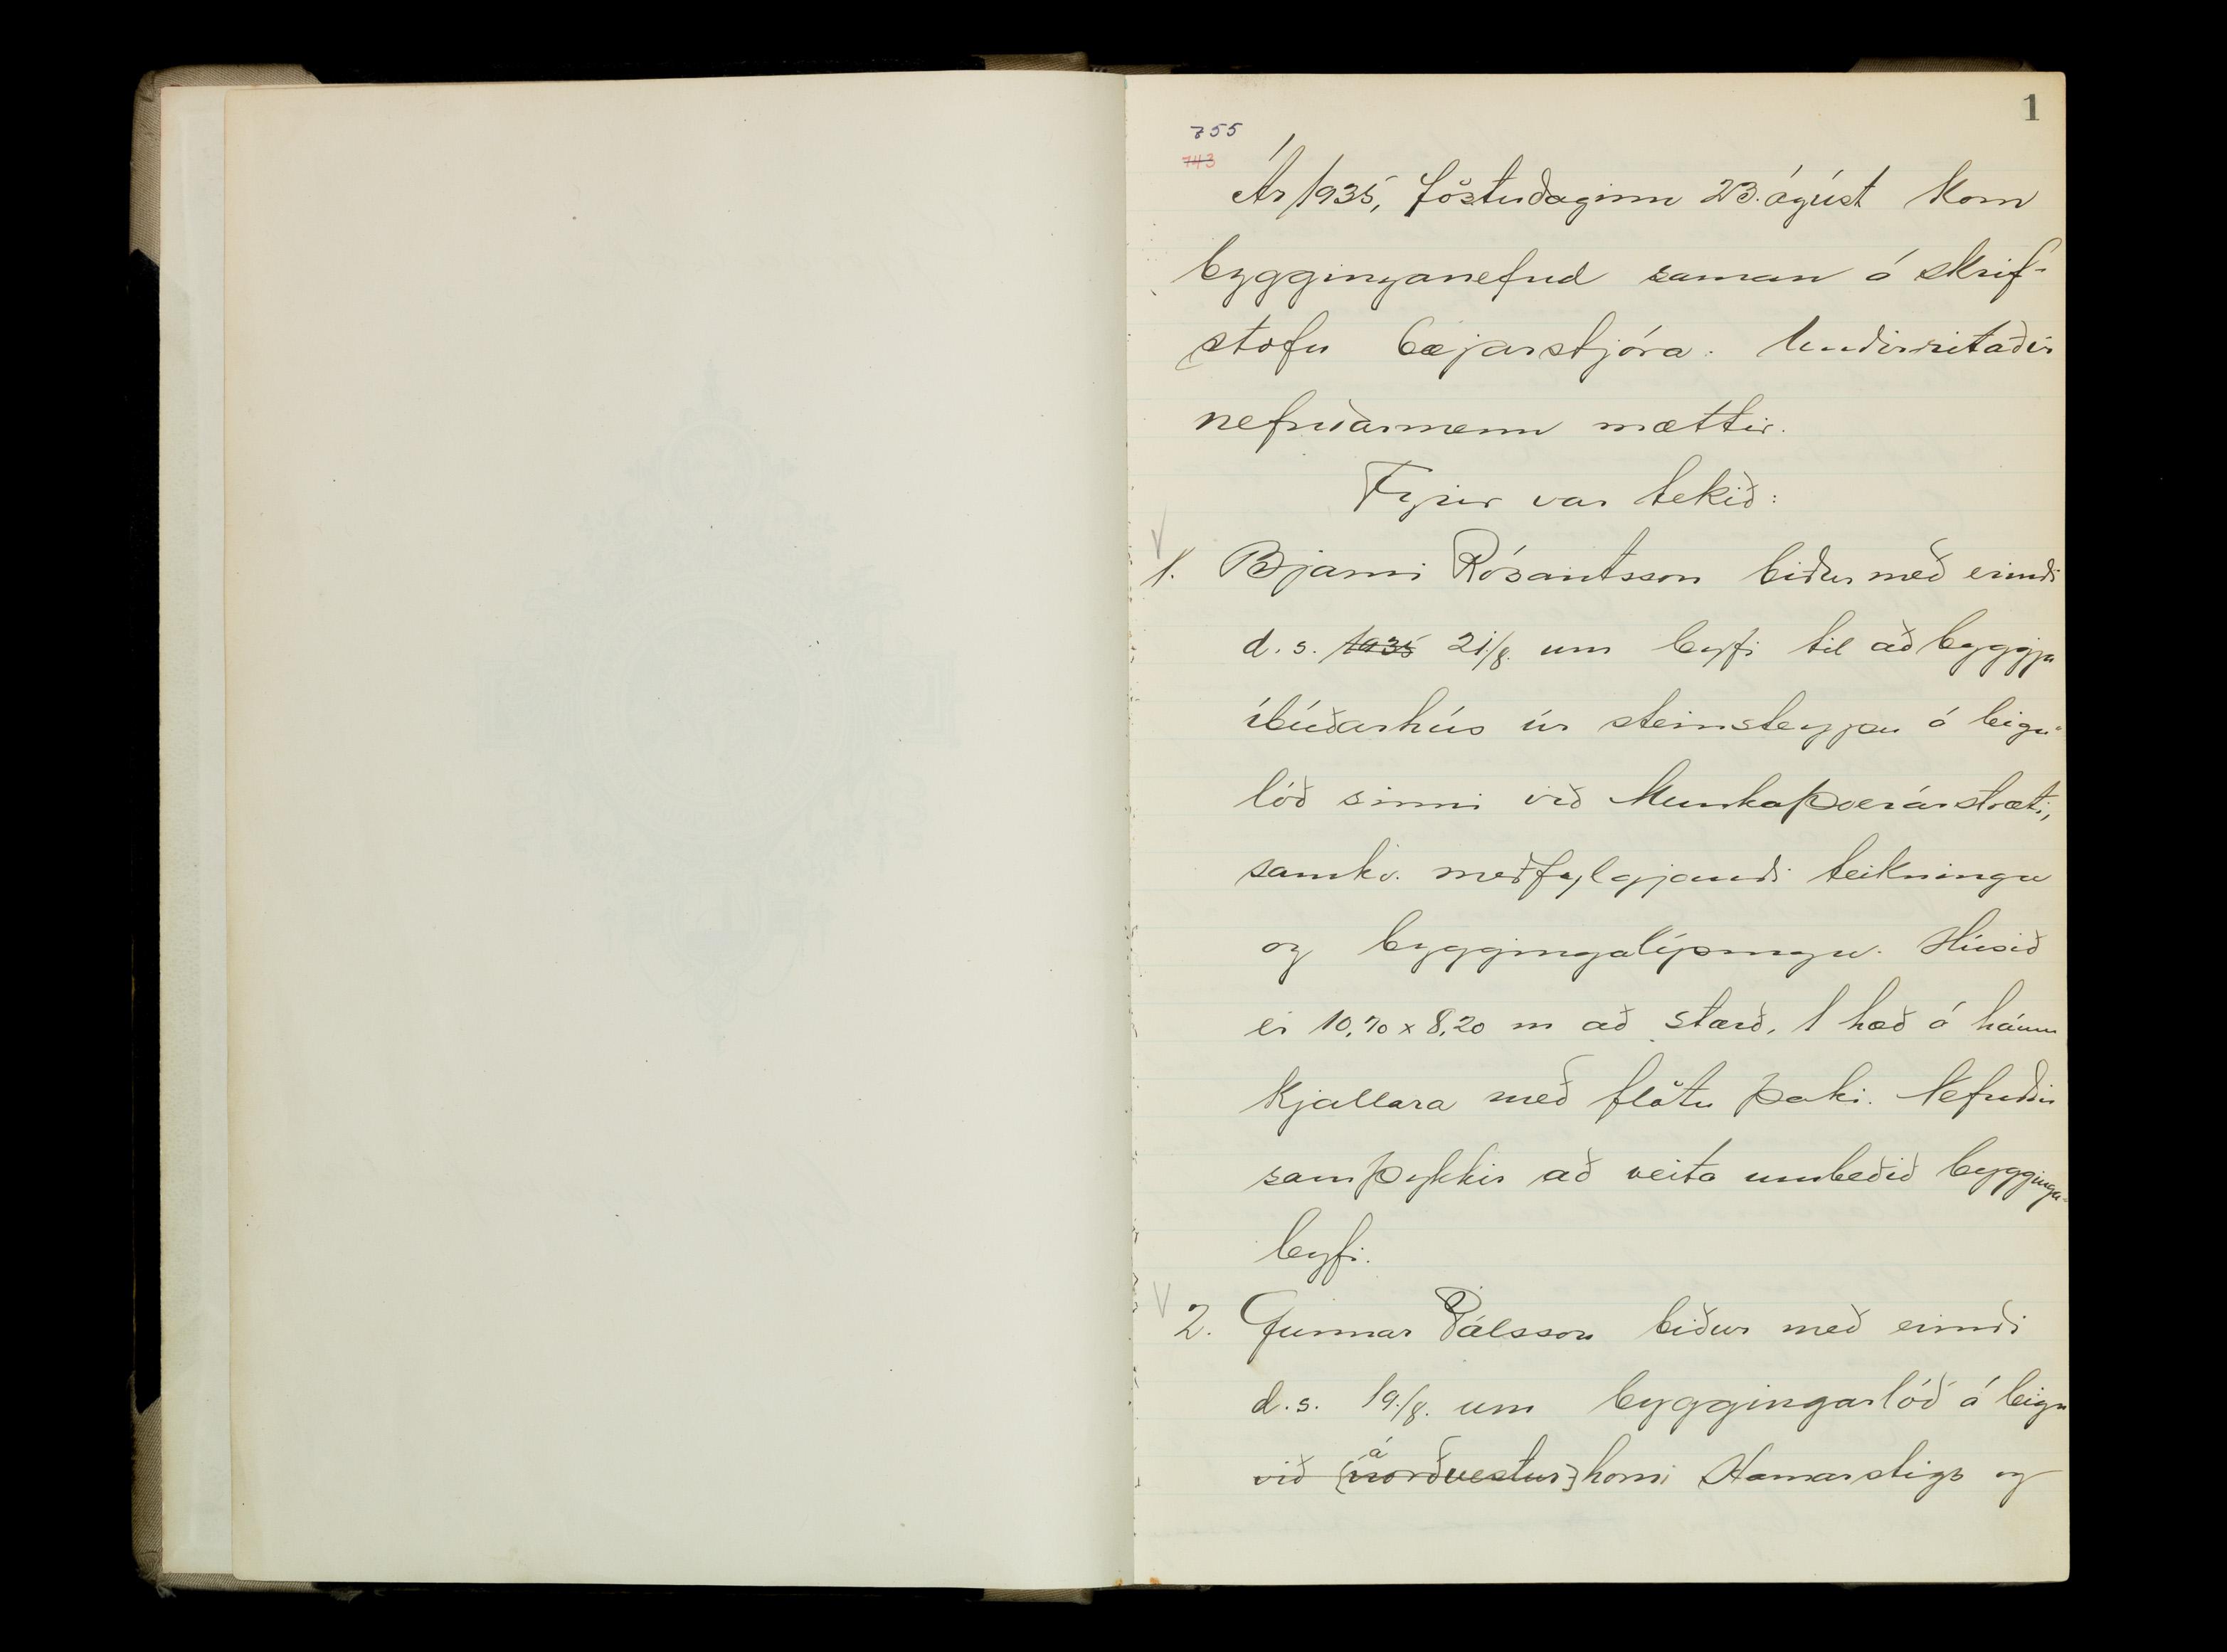 1
755
743
Ár 1935, föstudaginn 23. ágúst kom
bygginganefnd saman á skrif-
stofu bæjarstjóra. Undirritaðir
nefndarmenn mættir.
Fyrir var tekið:
1. Bjarni Rósantsson biður með erindi
d.s. 1935 21/8. um leyfi til að byggja
íbúðarhús úr steinsteypu á leigu-
lóð sinni við Munkaþverárstræti,
samkv. meðfylgjandi teikningu
og byggingalýsingu. Húsið
er 10,70 x 8,20 m að stærð, 1 hæð á háum
kjallara með flötu þaki. Nefndin
samþykkir að veita umbeðið bygginga-
leyfi.
2. Gunnar Pálsson biður með erindi
d.s. 19./8. um byggingarlóð á leigu
við (norðvestur) á horni Hamarstígs og